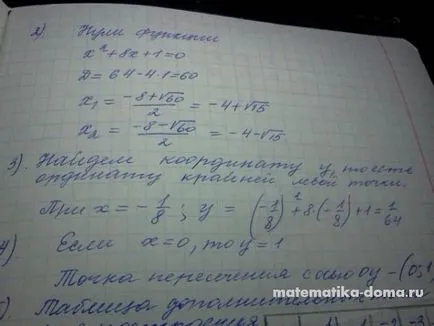 2) Нули функции
x² + 8x + 1 = 0
D = 64 - 4·1 = 60
x₁ = (-8 + √60) / 2 = -4 + √15
x₂ = (-8 - √60) / 2 = -4 - √15
3) Найдем координату y, то есть
ординату крайней левой точки.
При x = -1/8; y = (-1/8)² + 8·(-1/8) + 1 = 1/64
4) Если x = 0, то y = 1
Точка пересечения с осью oy - (0; 1
Таблица
matematika-doma.ru